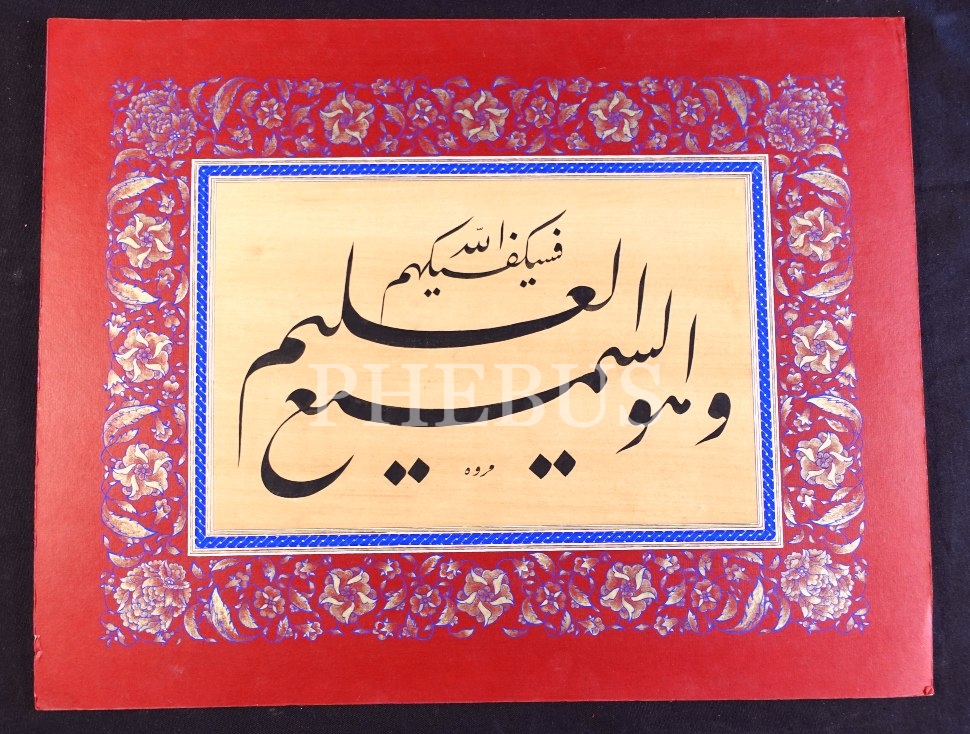 فسيكفيكهم الله
وهو السميع العليم
مروه
PHEBUS